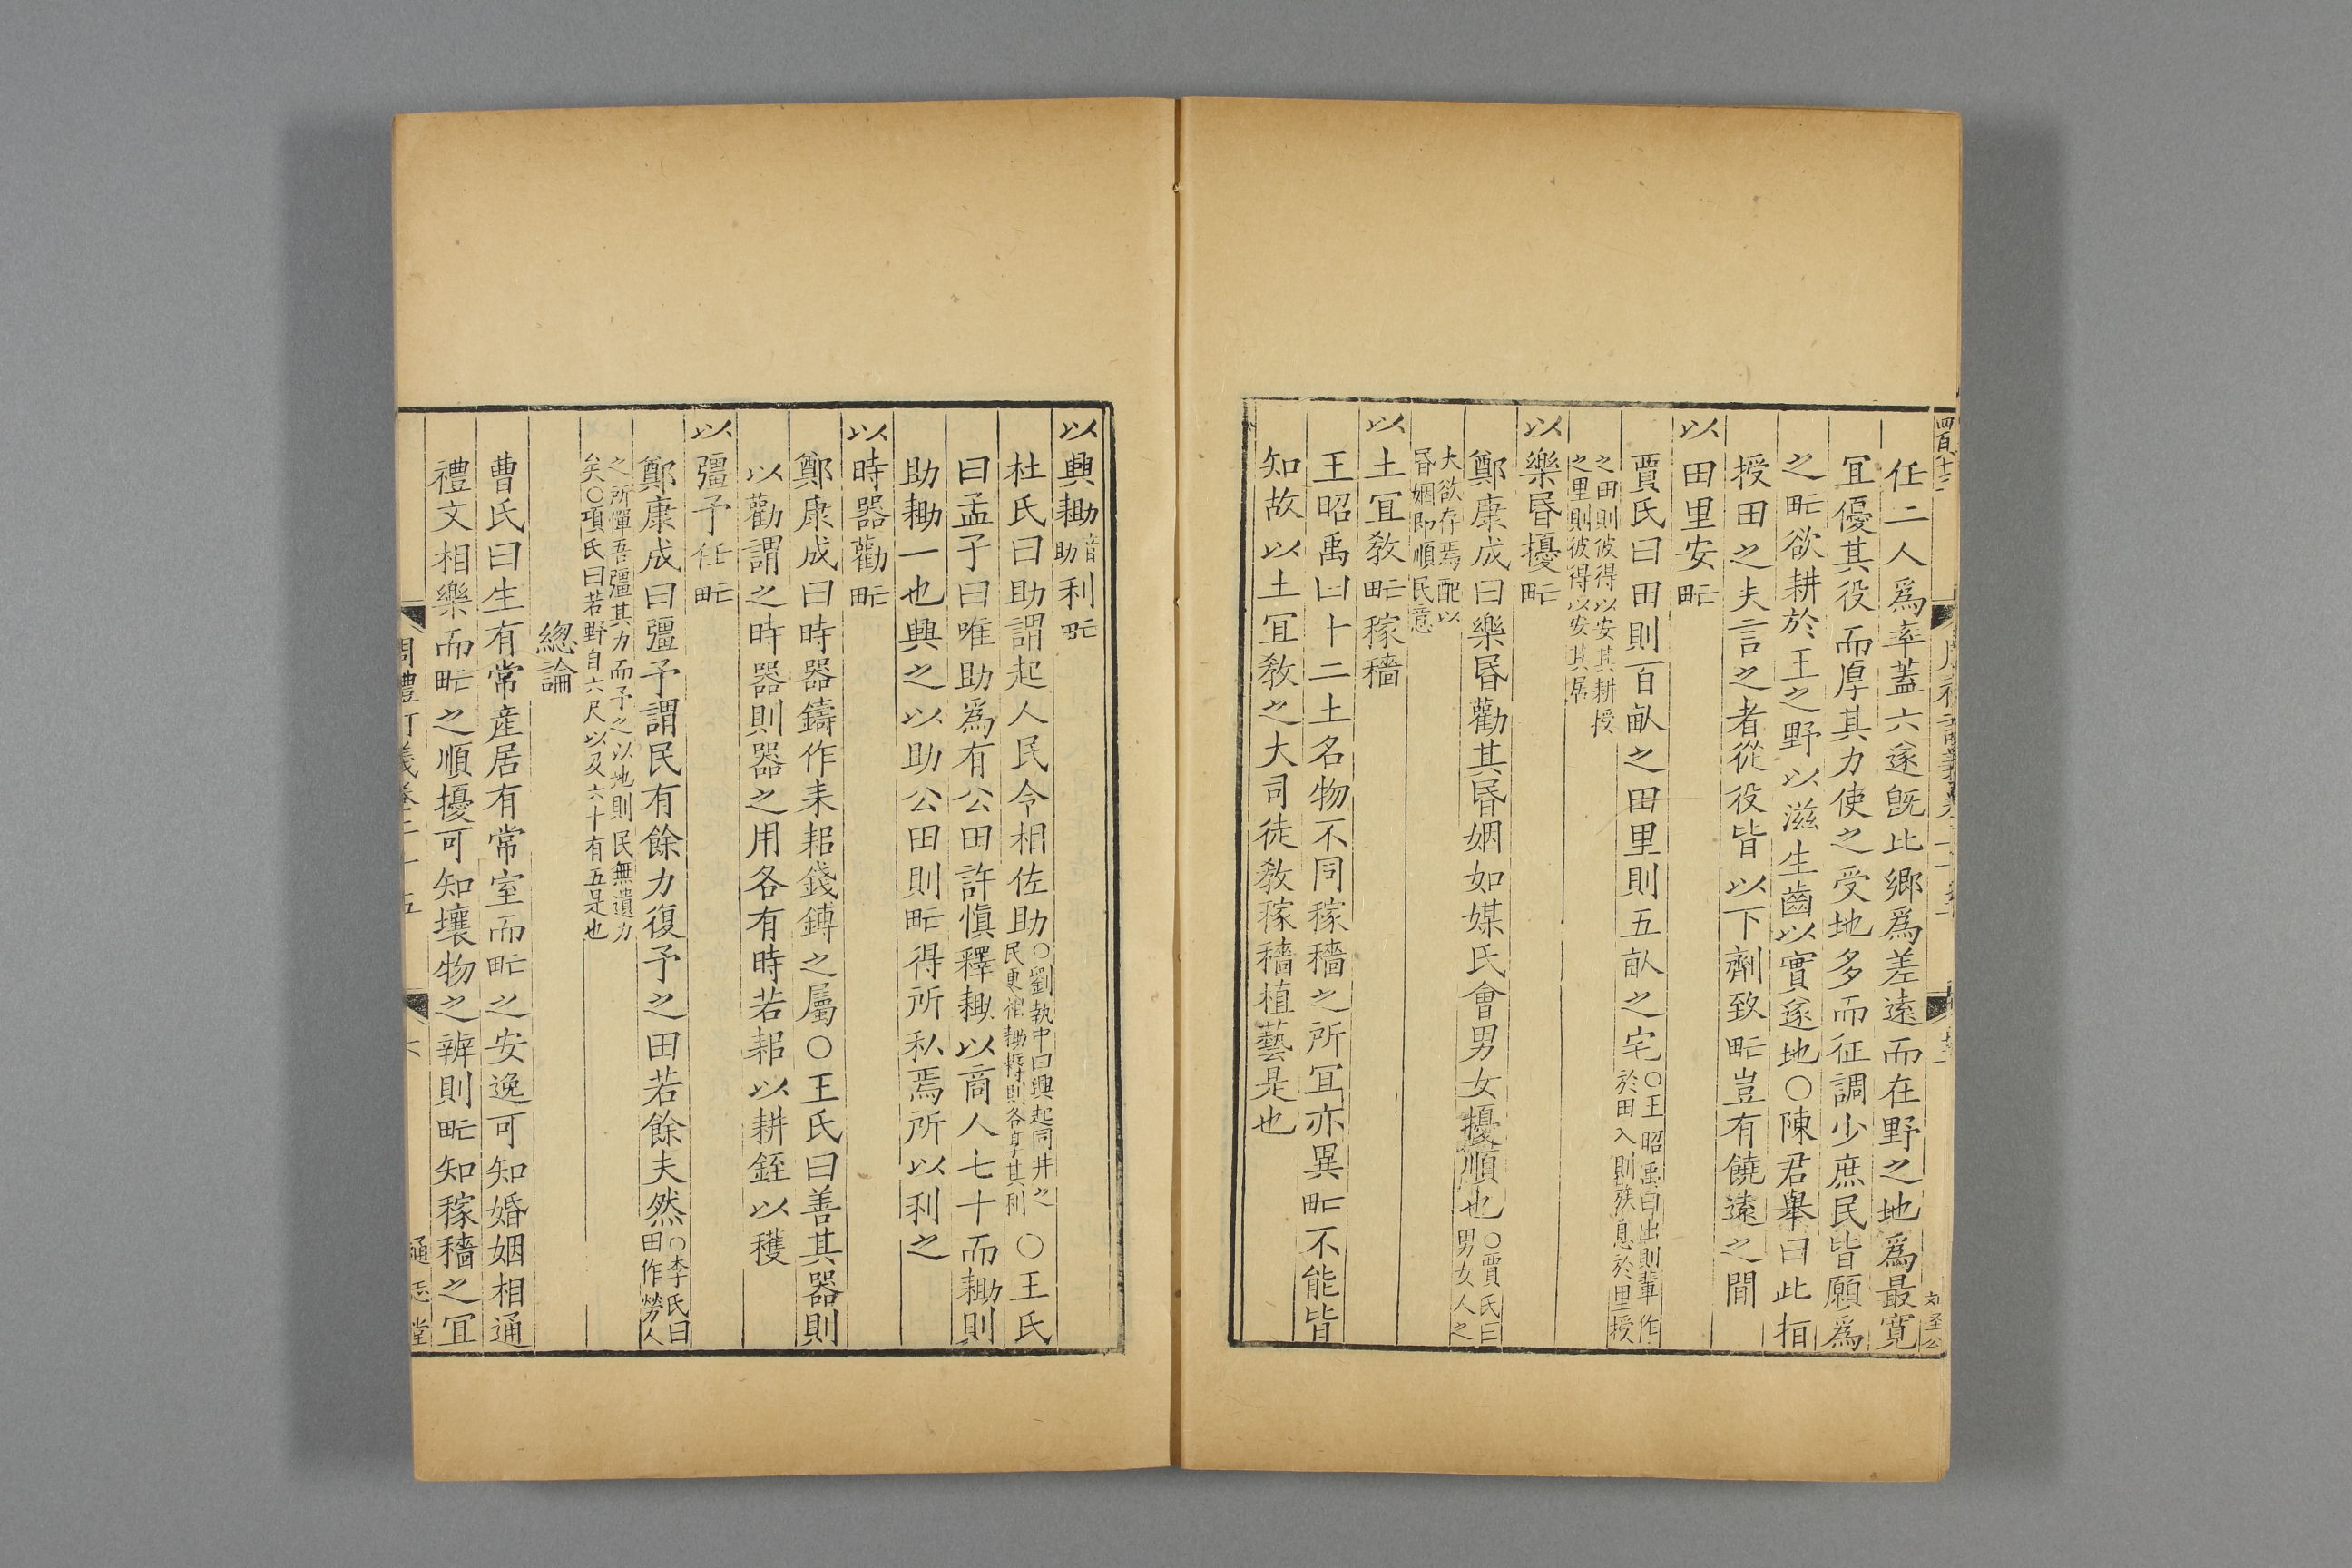 四百七十三
任二人爲率蓋六遂旣比鄉爲差遠而在野之地爲最寛
宜優其役而厚其力使之受地多而征調少庶民皆願爲
之甿欲耕於王之野以滋生齒以實遂地○陳君舉曰此指
授田之夫言之者從役皆以下劑致甿豈有饒遠之閒
以田里安甿
賈氏曰田則百畝之田里則五畝之宅○王昭禹曰出則輩作於田入則族息於里授
之田則彼得以安其耕授之里則彼得以安其居
以樂昬擾甿
鄭康成曰樂昬勸其昬姻如媒氏會男女擾順也○賈氏曰男女人之
大欲存焉配以昬姻即順民意
以土宜敎甿稼穡
王昭禹曰十二土名物不同稼穡之所宜亦異甿不能皆
知故以土宜敎之大司徒敎稼穡植藝是也
以興耡音助利甿
杜氏曰助謂起人民令相佐助○劉執中曰興起同井之民更相耡耨則各享其利○王氏
曰孟子曰唯助爲有公田許愼釋耡以商人七十而耡則
助耡一也興之以助公田則甿得所私焉所以利之
以時器勸甿
鄭康成曰時器鑄作耒耜錢鎛之屬○王氏曰善其器則
以勸謂之時器則器之用各有時若耜以耕銍以穫
以彊予任甿
鄭康成曰彊予謂民有餘力復予之田若餘夫然○李氏曰田作勞人
之所憚吾彊其力而予之以地則民無遺力矣○項氏曰若野自六尺以及六十有五是也
總論
曹氏曰生有常産居有常室而甿之安逸可知婚姻相通
禮文相樂而甿之順擾可知壤物之辨則甿知稼穡之宜
周禮訂義卷二十五 六 通志堂